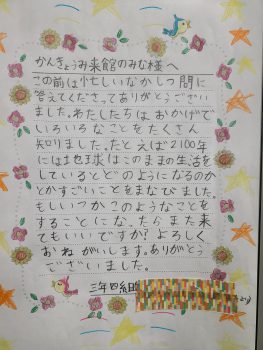 かんきょうみ来館のみな様へ
この前は忙しいなかしつ問に
答えてくださってありがとうござい
ました。わたしたちは おかげで
いろいろなことをたくさん
知りました。たとえば2100年
には地球はこのままの生活を
しているとどのようになるのか
とかすごいことをまなびました。
もしいつかこのようなことを
することになったらまた来
てもいいですか?よろしく
おねがいします。ありがとう
ございました。
三年四組
より